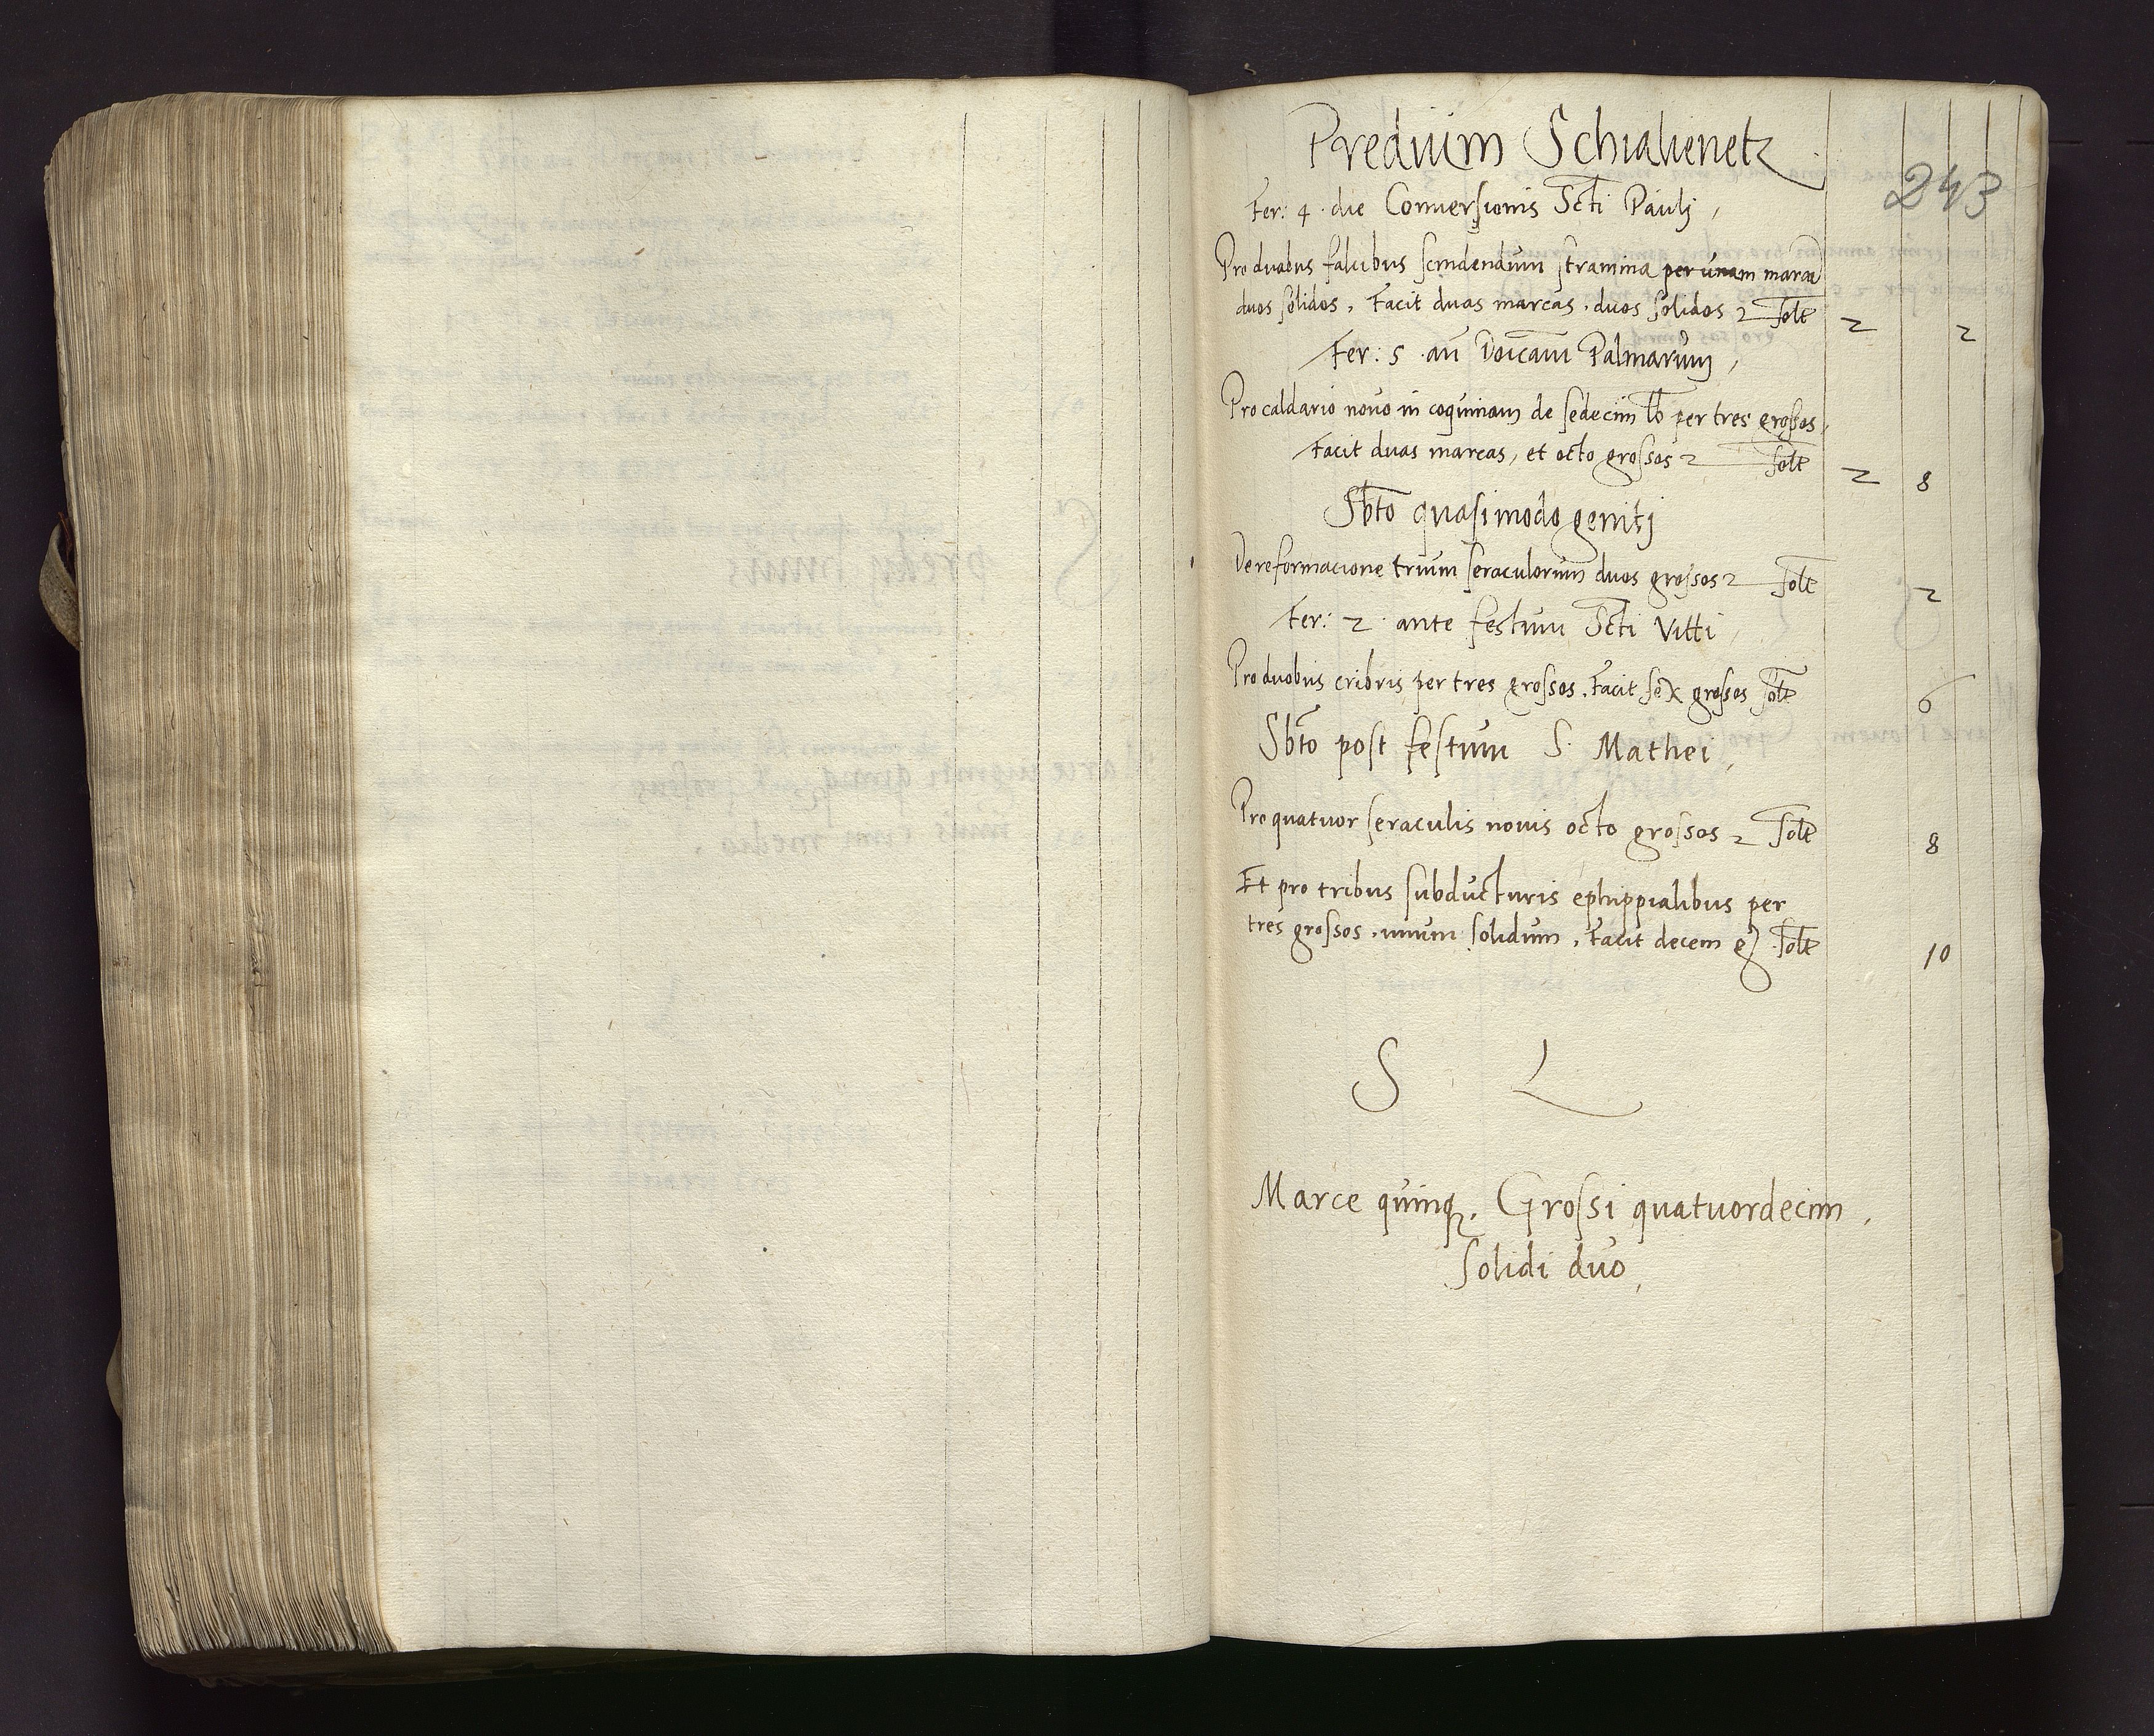 Predium Schialienetz
243
Fer: 4 · die Conuersionis Scti Paulj,
Pro duabus falcibus scindendum stramina per unam marcā
duos solidos. Facit duas marcas. duos solidos solt 2 2
Fer: 5 · an Doicam Palmarum,
Pro caldario nouo in coquinam de sedecim lb per tres grossos,
Facit duas marcas, et octo grossos solt 2 8
Sbto quasimodo genitj
De reformacione trium seraculorum duos grossos solt 2
Fer: 2 · ante festum Scti Vitti,
Pro duobus cribris per tres grossos. Facit sex grossos solt 6
Sbto post festum S. Mathei,
Pro quatuor seraculis nouis octo grossos solt 8
Et pro tribus subducturis ephippialibus per
tres grossos. unum solidum. Facit decem g solt 10
S L
Marce quinq. Grossi quatuordecim,
Solidi duo,